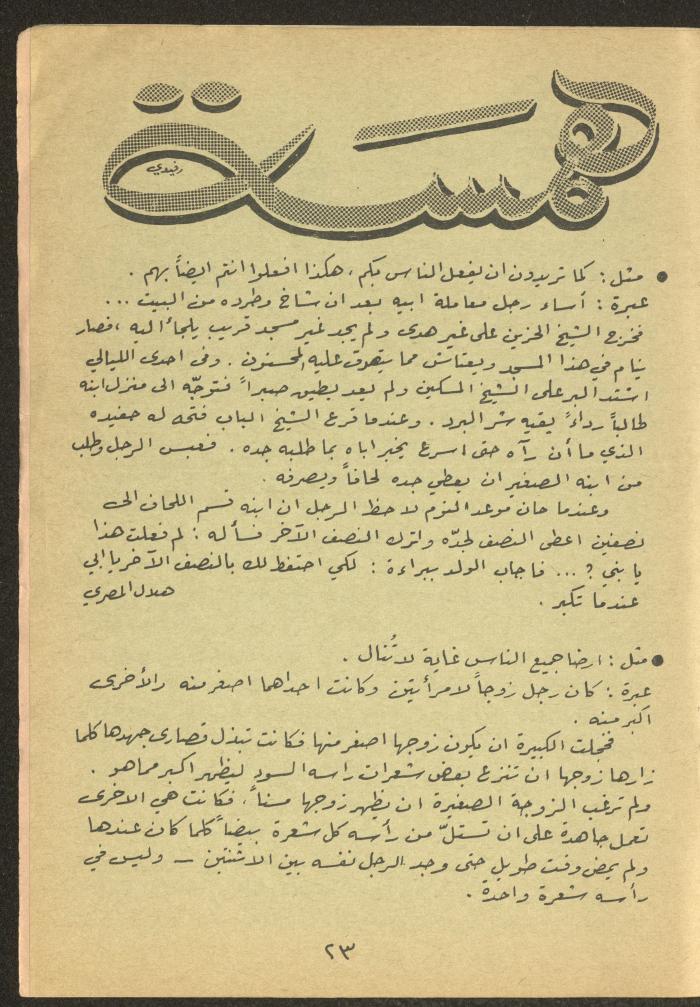 همسة
رفيدي
● مثل : كما تريدون ان يفعل الناس بكم ، هكذا افعلوا انتم ايضاً بهم .
عبرة : أساء رجل معاملة ابيه بعد ان شاخ وطرده من البيت ...
فخرج الشيخ الحزين على غير هدى ولم يجد غير مسجد قريب يلجأ اليه ، فصار
ينام في هذا المسجد ويعتاش مما يتصدق عليه المحسنون . وفي احدى الليالي
اشتد البرد على الشيخ المسكين ولم يعد يطيق صبراً فتوجّه الى منزل ابنه
طالباً رداءً يقيه شر البرد . وعندما قرع الشيخ الباب فتحه له حفيده
الذي ما أن رآه حتى اسرع يخبر اباه بما طلبه جده . فعبس الرجل وطلب
من ابنه الصغير ان يعطي جده لحافاً ويصرفه .
وعندما حان موعد النوم لاحظ الرجل ان ابنه قسم اللحاف الى
نصفين اعطى النصف لجدّه وترك النصف الآخر فسأله : لم فعلت هذا
يا بني ؟ ... فاجاب الولد ببراءة : لكي احتفظ لك بالنصف الآخر يا ابي
عندما تكبر . هلال المصري
● مثل : ارضا جميع الناس غاية لا تُنال .
عبرة : كان رجل زوجاً لامرأتين وكانت احداهما اصغر منه والأخرى
اكبر منه .
فخجلت الكبيرة ان يكون زوجها اصغر منها فكانت تبذل قصارى جهدها كلما
زارها زوجها ان تنزع بعض شعرات راسه السود ليظهر اكبر مما هو .
ولم ترغب الزوجة الصغيرة ان يظهر زوجها مسناً ، فكانت هي الاخرى
تعمل جاهدة على ان تستلّ من رأسه كل شعرة بيضاً كلما كان عندها
ولم يمض وقت طويل حتى وجد الرجل نفسه بين الاثنتين - وليس في
رأسه شعرة واحدة .
٢٣